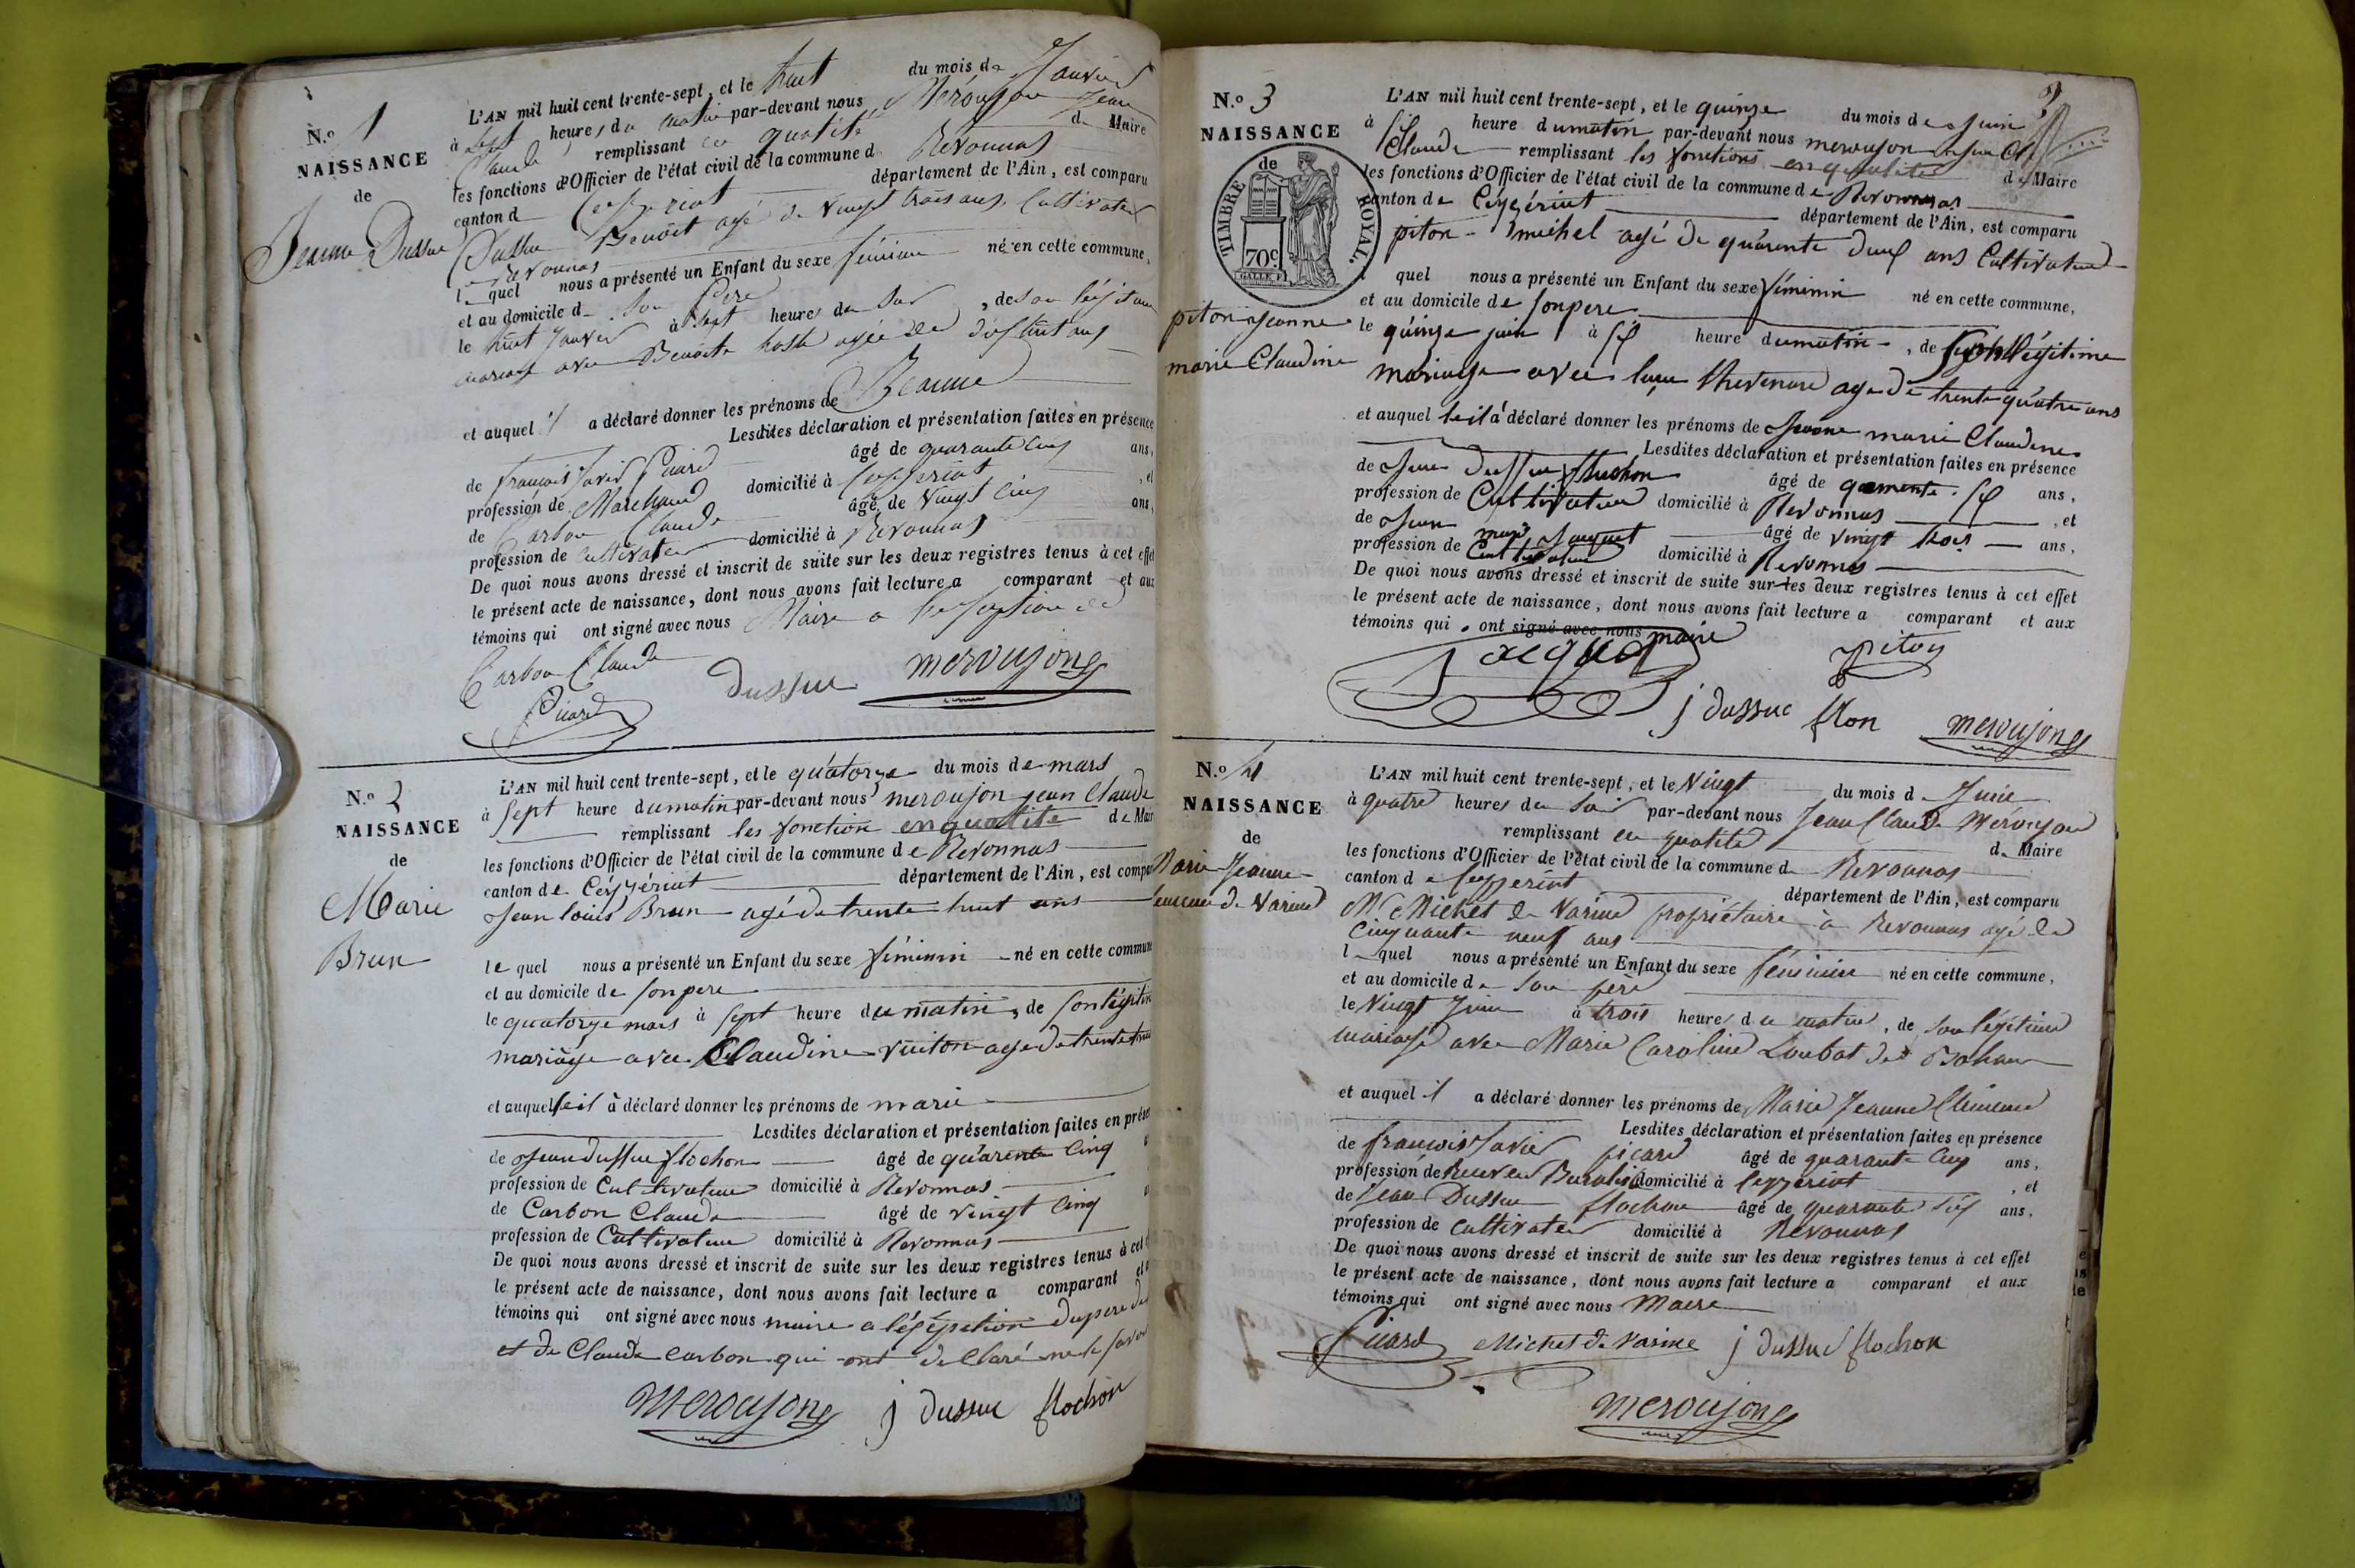 N.o 1
NAISSANCE
de
Jeanne Dussuc
L'AN mil huit cent trente-sept, et le huit du mois de Janvier
à sept heures du matin par-devant nous Méroujon Jean
Claude remplissant en qualité de Maire
les fonctions d'Officier de l'état civil de la commune d Revonnas
canton d Ceyzériat département de l'Ain, est comparu
Dussuc Benoit agé de vingt trois ans, Cultivateur
Revonnas
l quel nous a présenté un Enfant du sexe féminin né en cette commune,
et au domicile d son Père
le huit Janvier à sept heures du soir, de son légitime
mariage avec Benoite agée de dix huit ans
et auquel il a déclaré donner les prénoms de Jeanne
Lesdites déclaration et présentation faites en présence
de françois Xavier Picard âgé de quarante cinq ans,
profession de Marchand domicilié à Ceyzériat, et
de Carbon Claude âgé de vingt cinq ans,
profession de cultivateur domicilié à Revonnas
De quoi nous avons dressé et inscrit de suite sur les deux registres tenus à cet effet
le présent acte de naissance, dont nous avons fait lecture a comparant et aux
témoins qui ont signé avec nous Maire a
Carbon Claude
Picard
Dussuc
meroujong
N.o 2
NAISSANCE
de
Marie
Brun
L'AN mil huit cent trente-sept, et le quatorze du mois de mars
à sept heure dumatin par-devant nous meroujon jean Claude
remplissant les fonction enqualité de Mair
les fonctions d'Officier de l'état civil de la commune de Revonnas
canton de Ceyzériat département de l'Ain, est compar
Jean louis Brun agé de trente huit ans
le quel nous a présenté un Enfant du sexe féminin né en cette commune
et au domicile de son pere
le quatorze mars à sept heure du matin, de son légitim
mariage avec Claudine Vuiton age de trente
et auquel le il à déclaré donner les prénoms de marie
Lesdites déclaration et présentation faites en prése
de Jean dussuc flochon âgé de quarente cinq
profession de Cultivateur domicilié à Revonnas
de Carbon Claude âgé de vingt cinq
profession de Cultivateur domicilié à Revonnas
De quoi nous avons dressé et inscrit de suite sur les deux registres tenus à cet
le présent acte de naissance, dont nous avons fait lecture a comparant et
témoins qui ont signé avec nous maire a léxception du pere de
et de Claude carbon qui ont déclaré ne le savoi
meroujong j Dussuc flochon
3
N.o 3
NAISSANCE
de
TIMBRE ROYAL.
70c.
piton Jeanne
marie Claudine
L'AN mil huit cent trente-sept, et le quinze du mois de Juin
à six heure dumatin par-devant nous meroujon
Claude remplissant les fonctions enqualité de Maire
les fonctions d'Officier de l'état civil de la commune de Revonnas
canton de Ceyzériat département de l'Ain, est comparu
piton michel agé de quarente deux ans Cultivateur
quel nous a présenté un Enfant du sexe féminin né en cette commune,
et au domicile de son pere
le quinze juin à six heure dumatin, de légitime
mariage avec thevenard age de trente quatre ans
et auquel le il à déclaré donner les prénoms de Jeanne marie Claudine
Lesdites déclaration et présentation faites en présence
de Jean dussuc fluchon âgé de quarente six ans,
profession de Cultivateur domicilié à Revonnas, et
de Jean marie Jaquet âgé de vingt trois ans,
profession de Cultivateur domicilié à Revonnas
De quoi nous avons dressé et inscrit de suite sur les deux registres tenus à cet effet
le présent acte de naissance, dont nous avons fait lecture a comparant et aux
témoins qui ont signé avec nous maire
piton
j dussuc flon meroujong
N.o 4
NAISSANCE
de
Marie Jeanne
de Varine
L'AN mil huit cent trente-sept, et le Vingt du mois d Juin
à quatre heures du soir par-devant nous Jean Claude Méroujon
remplissant en qualité d Maire
les fonctions d'Officier de l'état civil de la commune d Revonnas
canton de Ceyzériat département de l'Ain, est comparu
Mr Michet de Varine propriétaire à Revonnas agé de
cinquante neuf ans
l quel nous a présenté un Enfant du sexe féminin né en cette commune,
et au domicile de son père
le Vingt Juin à trois heures du matin, de son légitime
mariage avec Marie Caroline Loubat de Bohan
et auquel il a déclaré donner les prénoms de Marie Jeanne Climene
Lesdites déclaration et présentation faites en présence
de françois Xavier picard âgé de quarante cinq ans,
profession de Receveur Buraliste domicilié à Ceyzériat, et
de Jean Dussuc flochon âgé de quarante six ans,
profession de cultivateur domicilié à Revonnas
De quoi nous avons dressé et inscrit de suite sur les deux registres tenus à cet effet
le présent acte de naissance, dont nous avons fait lecture a comparant et aux
témoins qui ont signé avec nous Maire
Picard Michet de Varine j Dussuc flochon
meroujong